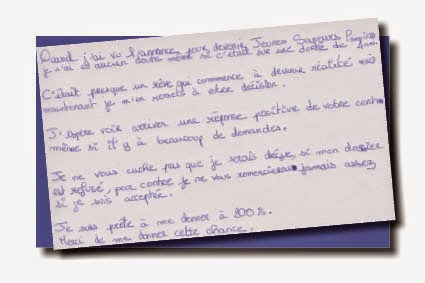 Quand j'ai vu l'annonce pour devenir Jeunes Sapeurs Pompiers
je n'ai eu aucun doute même si c'était sur une durée de 4 ans.
C'était presque un rêve qui commence à devenir réalité mais
maintenant je m'en remets à votre décision.
J'espère voir arriver une réponse positive de votre centre
même si il y à beaucoup de demandes.
Je ne vous cache pas que je serais déçue, si mon dossier
est refusé, par contre je ne vous remercierais jamais assez
si je suis acceptée.
Je suis prête à me donner à 200%.
Merci de me donner cette chance.